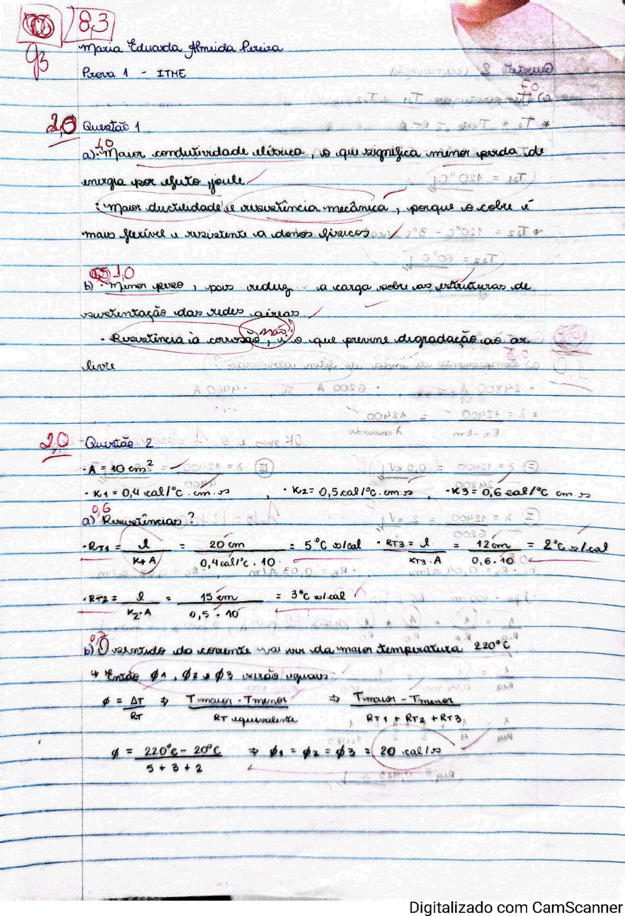 8,3
93
Maria Eduarda Almeida Pereira
Prova 1 - ITME
2,0 Questão 1
1,0
a) · Maior condutividade elétrica, o que significa menor perda de
energia por efeito joule
· Maior ductilidade e resistência mecânica, porque o cobre é
mais flexível e resistente a danos físicos
1,0
b) · Menor peso, pois reduz a carga sobre as estruturas de
sustentação das redes aéreas
· Resistência à corrosão, o que previne degradação ao ar
livre
2,0 Questão 2
· A = 10 cm²
· K1 = 0,4 cal/°C . cm . s , · K2 = 0,5 cal/°C . cm . s , · K3 = 0,6 cal/°C . cm . s
0,6
a) Resistências?
· RT1 = l / K1 A = 20 cm / 0,4 cal/°C . 10 = 5 °C s/cal · RT3 = l / KT3 . A = 12 cm / 0,6 . 10 = 2 °C s/cal
· RT2 = l / K2 . A = 15 cm / 0,5 . 10 = 3 °C s/cal
0,7
b) O sentido da corrente vai vir da maior temperatura 220°C
↳ Então Ø1, Ø2 e Ø3 serão iguais
Ø = ΔT / RT ⇒ Tmaior - Tmenor / RT equivalente ⇒ Tmaior - Tmenor / RT1 + RT2 + RT3
Ø = 220°C - 20°C / 5 + 3 + 2 ⇒ Ø1 = Ø2 = Ø3 = 20 cal/s
Digitalizado com CamScanner